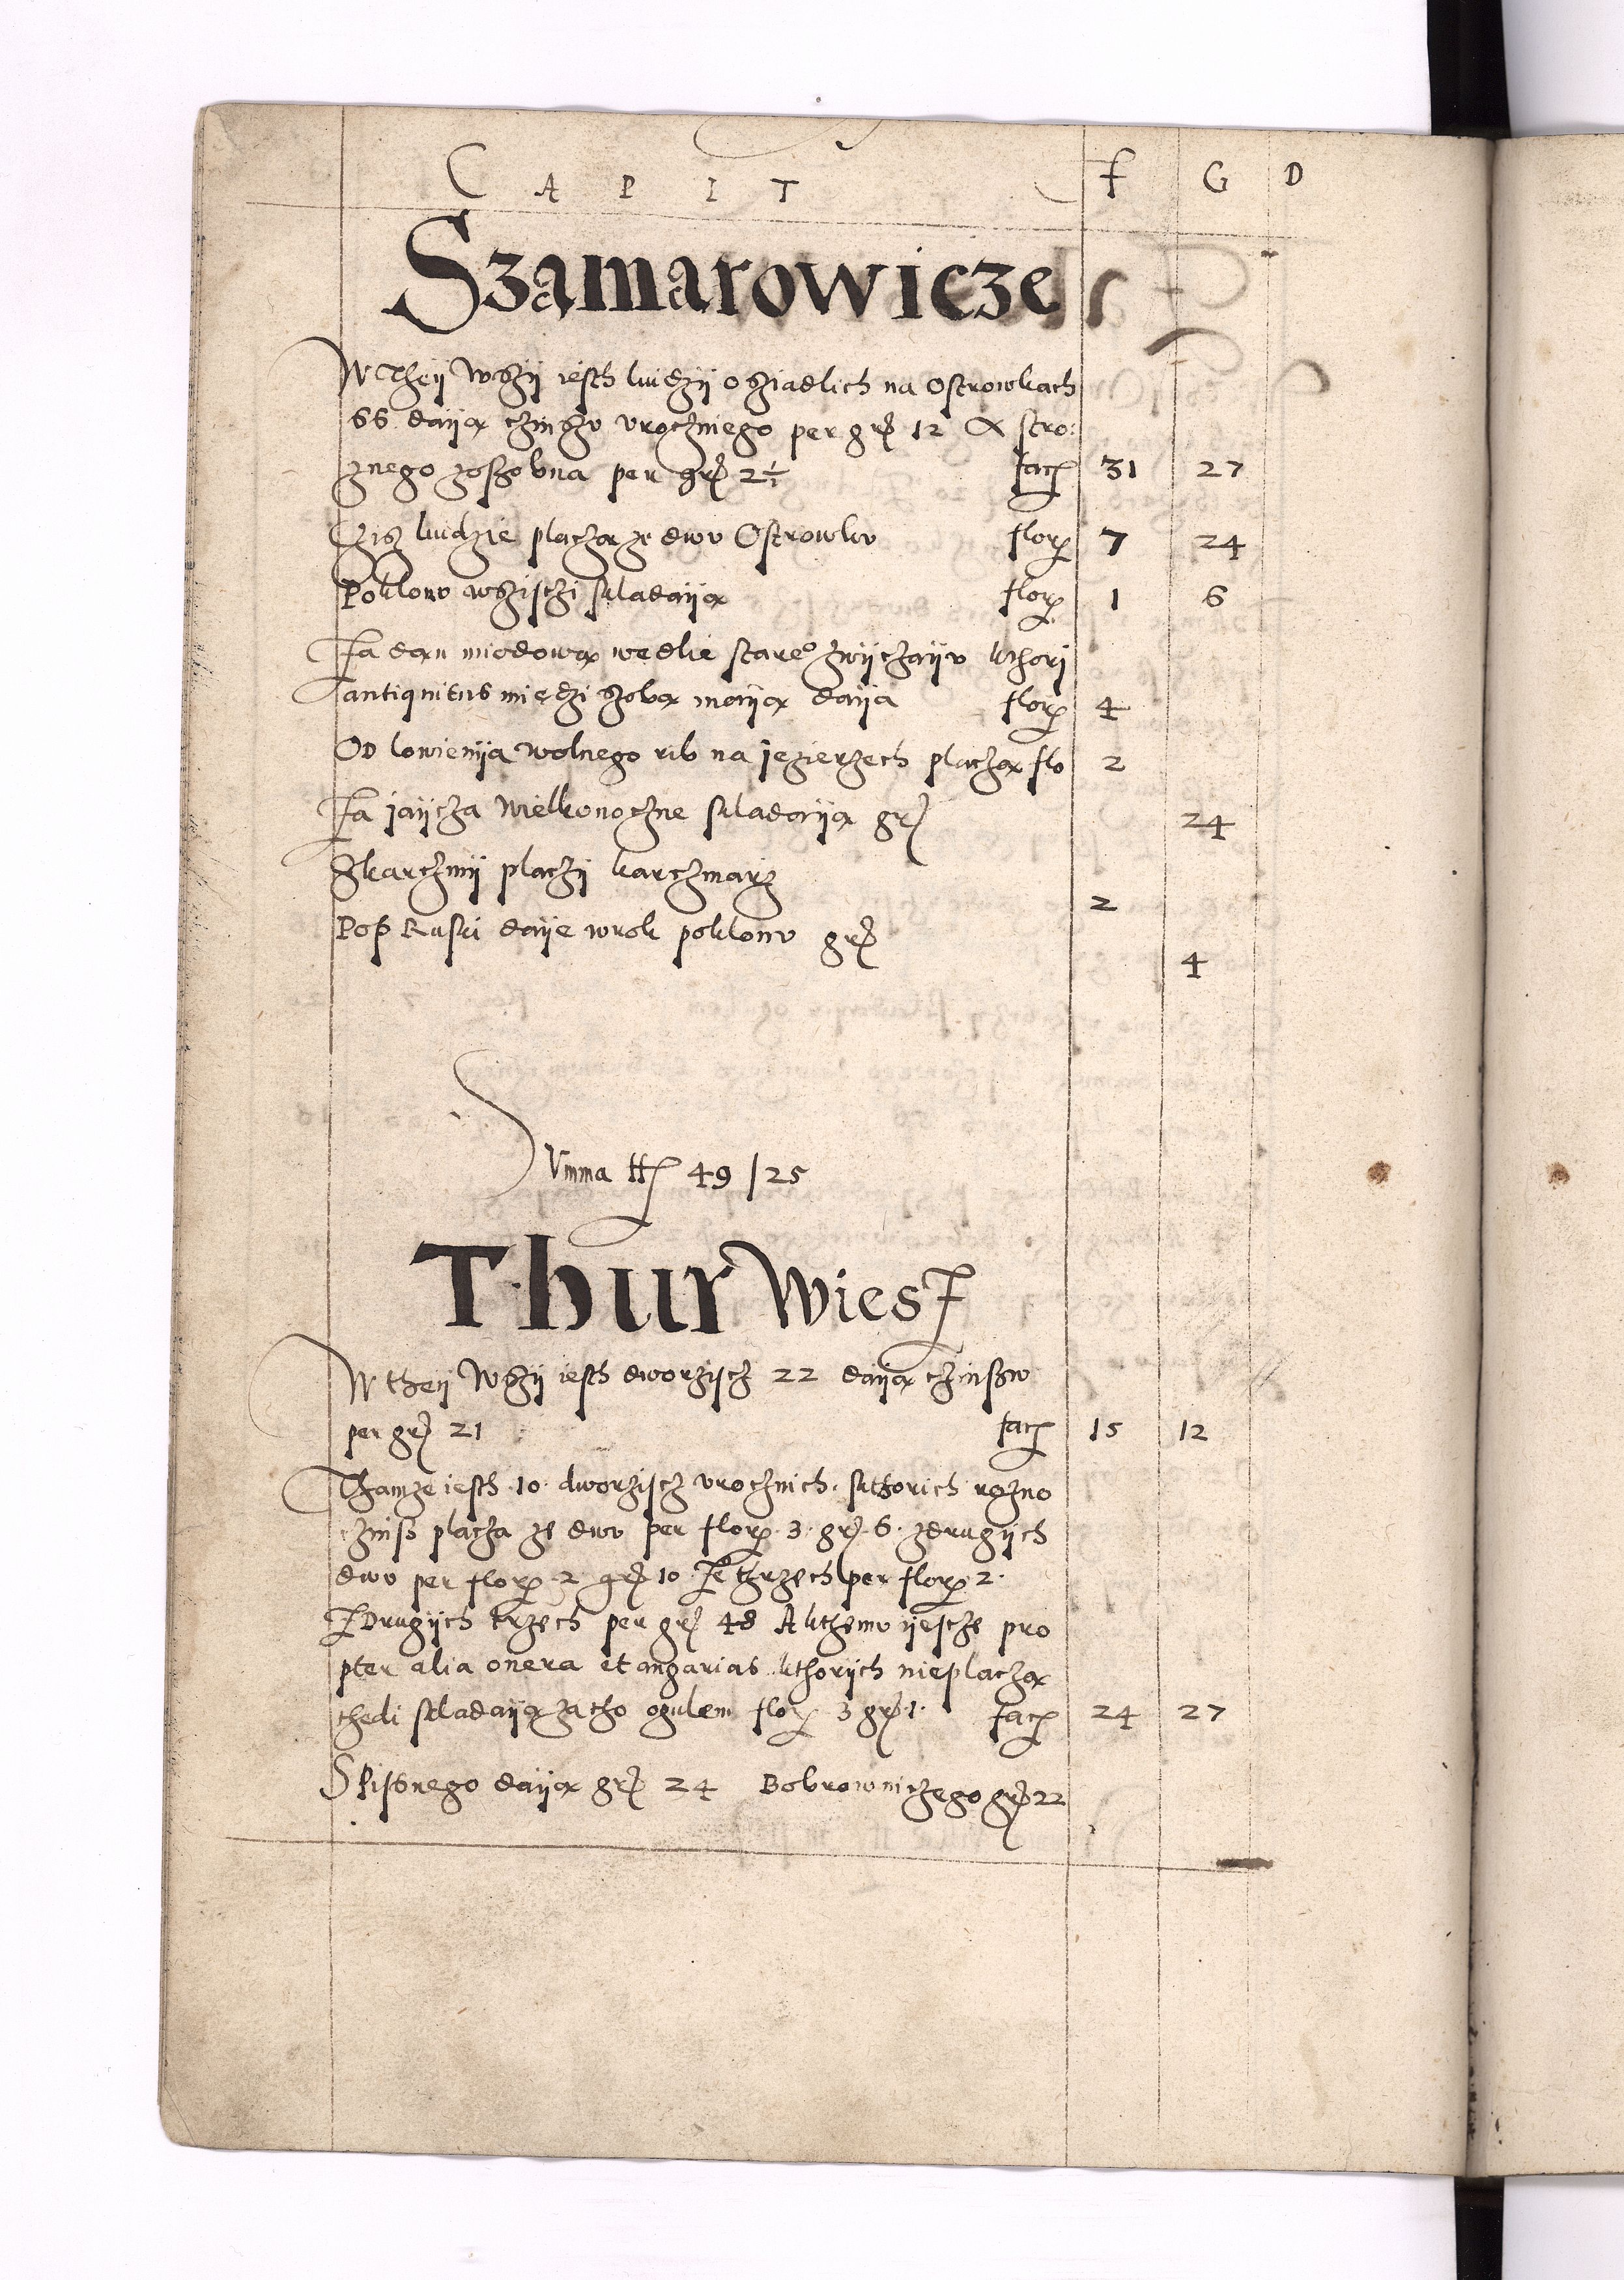 C A P I T F G D
Szamarowicze
W Theÿ wszÿ iesth ludzÿ osziadlich na Ostrowkach
66 daÿą czinszu urocznego per gr 12 A stro:
znego zoszobna per gr 2½ facᵗ 31 27
Czisz ludzie placzą ze dwu Ostrowku flor 7 24
Poklonu wszisczi skladaÿą flor 1 6
Za dan miodową wedlie stareo zwÿczaÿu kthori
antiquitus miedzi szobą maÿą daÿa flor 4
Od lowienÿa wolnego rib na jezierzech placzą flo 2
Za jaÿcza wielkonoczne skladaÿą gr 24
Z karczmÿ placzÿ karczmarz 2
Pop Ruski daÿe wrok poklonu gr 4
Summa ff 49 / 25
Thur Wies F
W theÿ Wszÿ iesth dworzisch 22 daÿą czinszu
per gr 21 facᵗ 15 12
Thamze iesth 10 dworzisch urocznich, kthorich rozno
czinsz placza ze dwu per flor 3 gr 6 zdrugÿch
dwu per flor 2 gr 10 Ze thrzech per flor 2
Z Drugÿch trzech per gr 48 A kthemu ÿescze pro
pter alia onera et angarias kthorÿch nieplaczą
thedi skladaÿą za tho ogulem flor 3 gr 1 facᵗ 24 27
Spisnego daÿą gr 24 Bobrowniczego gr 22